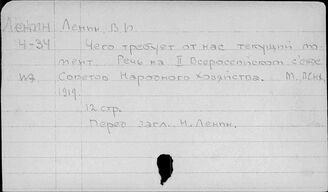 Ленин Ленин, В. И.
4-34 Чего требует от нас текущий мо-
мент. Речь на II Всероссийском съезде
Советов Народного Хозяйства. М.,
1919.
12 стр.
Перед загл. Н. Ленин.